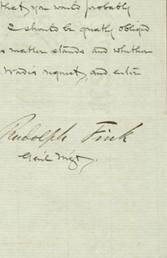 that you would probably
I should be greatly obliged
matter stands and whether
Wade's request, and enter
Rudolph Fink
Gen'l Mgr.